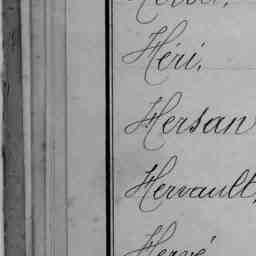 Héri.
Hersan
Hervault,
Hervé